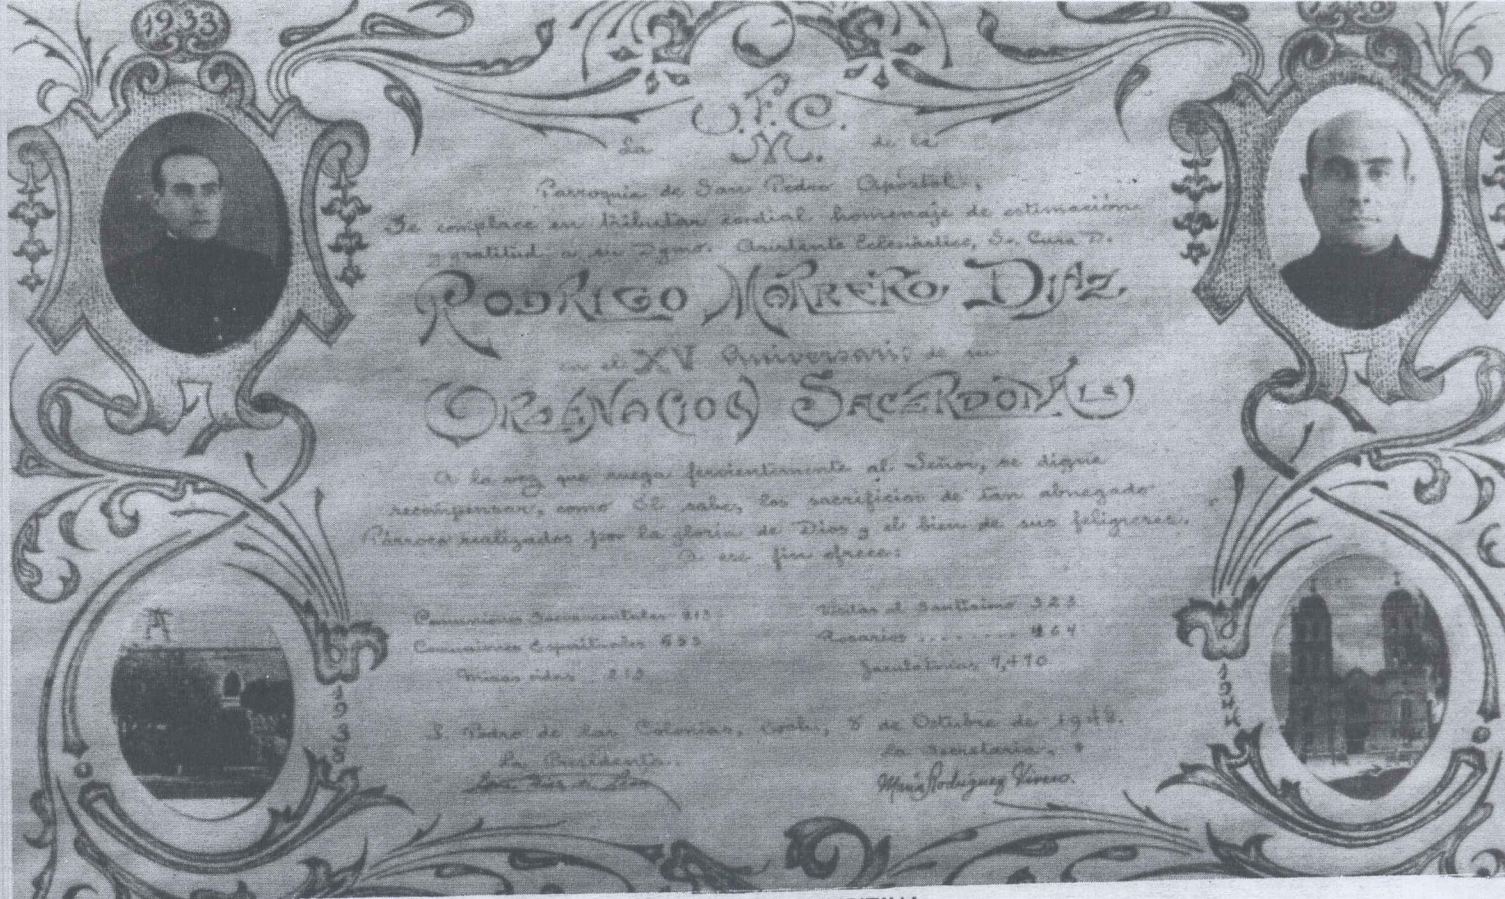 1933
U.F.C.
La M. de la
Parroquia de San Pedro Apóstol,
Se complace en tributar cordial homenaje de estimación
y gratitud a su Dgmo. Asistente Eclesiástico, Sr. Cura D.
RODRIGO MARRERO DIAZ.
en el XV Aniversario de su
ORDENACION SACERDOTAL
A la vez que ruega fervientemente al Señor, se digne
recompensar, como Él sabe, los sacrificios de tan abnegado
Párroco realizados por la gloria de Dios y el bien de sus feligreses.
A ese fin ofrece:
Comuniones Sacramentales
Comuniones Espirituales
Misas oidas
Visitas al Santísimo 323
Rosarios ........
Jaculatorias 7,470
1938
1944
S. Pedro de las Colonias, Coah., 8 de Octubre de 1948.
La Presidenta.
La Secretaria,
María Rodríguez Vivero.